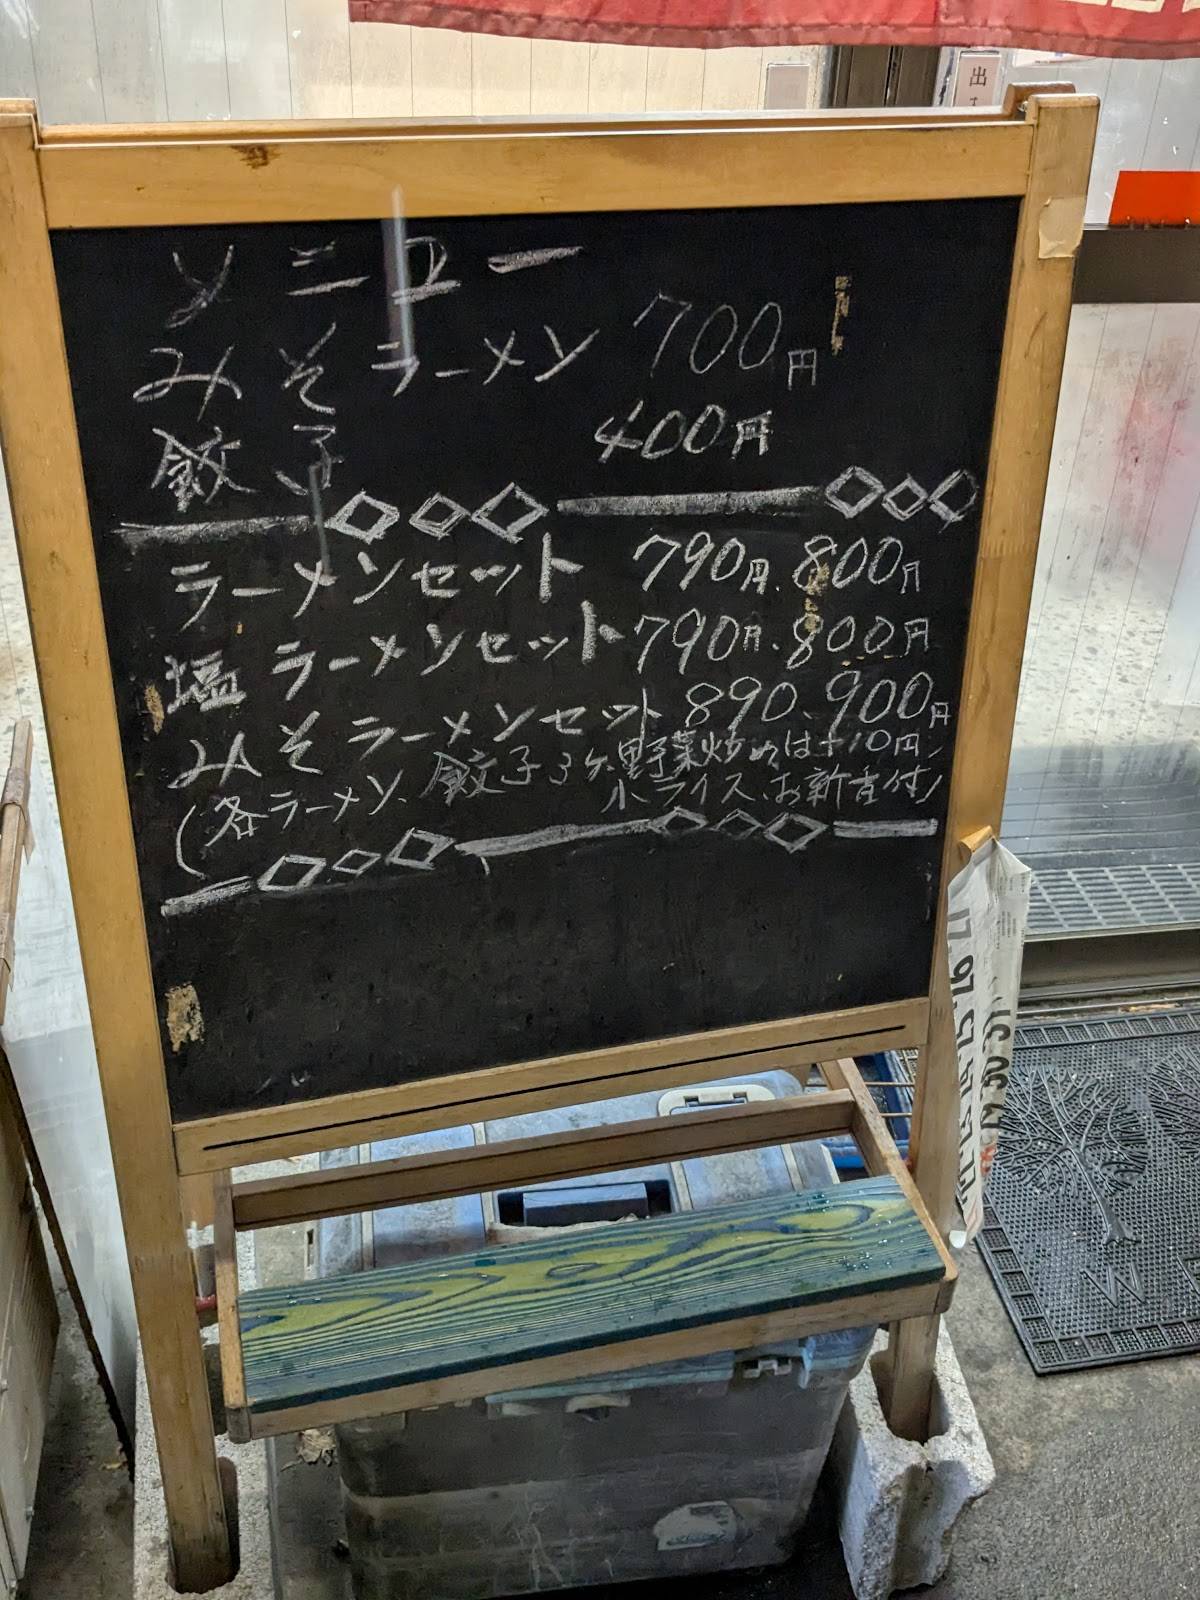 メニュー
みそラーメン 700円
餃子 400円
ラーメンセット 790円、800円
塩ラーメンセット 790円、800円
みそラーメンセット 890、900円
(各ラーメン、餃子3ヶ、野菜炒めは+10円、
小ライス、お新香付)
出